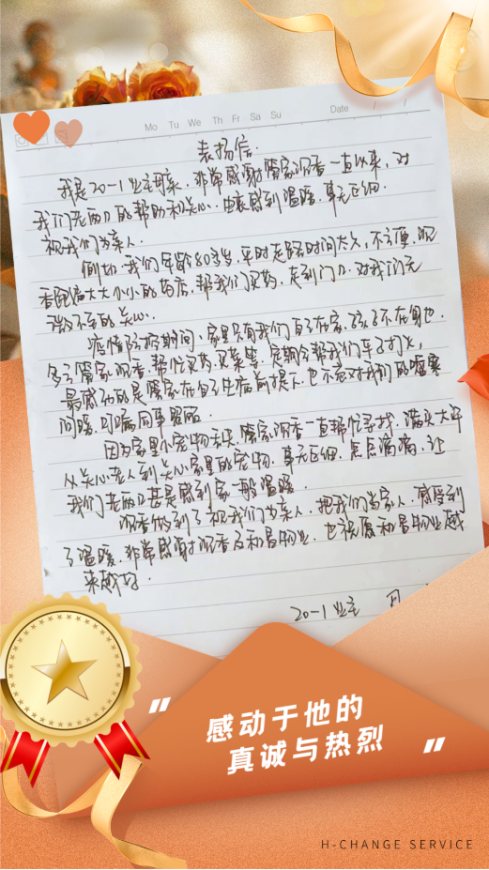 Mo Tu We Th Fr Sa Su Date / /
表扬信
我是20-1业主, 非常感谢管家沉香一直以来, 对
我们老两口的帮助和关心, 由衷感到温暖, 事无巨细,
视我们为亲人.
例如, 我们年龄80多岁, 平时走路时间太久, 不方便, 沉
香跑遍大大小小的药店, 帮我们买药, 送到门口, 对我们无
微不至的关心.
疫情防控期间, 家里只有我们自己在家, 孩子不在身边,
多亏管家沉香, 帮忙买药, 买菜等, 定期会帮我们车子打火,
最感动的是管家在自己生病前提下, 也不忘对我们的嘘寒
问暖, 叮嘱同事照顾.
因为家里小宠物丢失, 管家沉香一直帮忙寻找, 满头大汗
从关心老人到关心家里的宠物, 事无巨细, 点点滴滴, 让
我们老两口甚是感到家一般温暖
沉香做到了视我们为亲人, 把我们当家人, 感受到
了温暖, 非常感谢沉香及和昌物业, 也祝愿和昌物业越
来越好.
20-1业主
月
“ 感动于他的
真诚与热烈 ”
H-CHANGE SERVICE